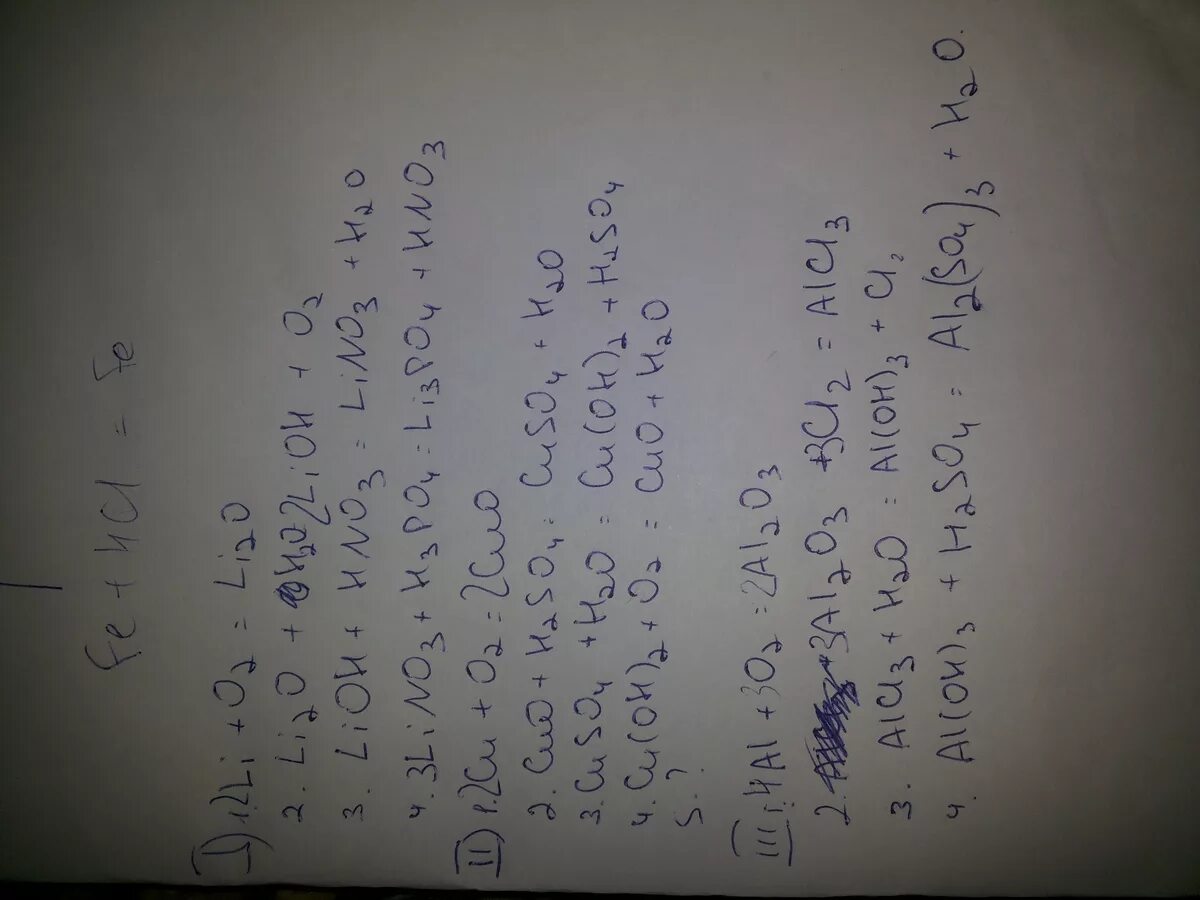 Fe + HCl = Fe
I) 1. 2Li + O₂ = Li₂O
2. Li₂O + H₂O = 2LiOH + O₂
3. LiOH + HNO₃ = LiNO₃ + H₂O
4. 3LiNO₃ + H₃PO₄ = Li₃PO₄ + HNO₃
II) 1. 2Cu + O₂ = 2CuO
2. CuO + H₂SO₄ = CuSO₄ + H₂O
3. CuSO₄ + H₂O = Cu(OH)₂ + H₂SO₄
4. Cu(OH)₂ + O₂ = CuO + H₂O
5. ?
III 1. 4Al + 3O₂ = 2Al₂O₃
2. 3Al₂O₃ + 3Cl₂ = AlCl₃
3. AlCl₃ + H₂O = Al(OH)₃ + Cl₂
4. Al(OH)₃ + H₂SO₄ = Al₂(SO₄)₃ + H₂O.